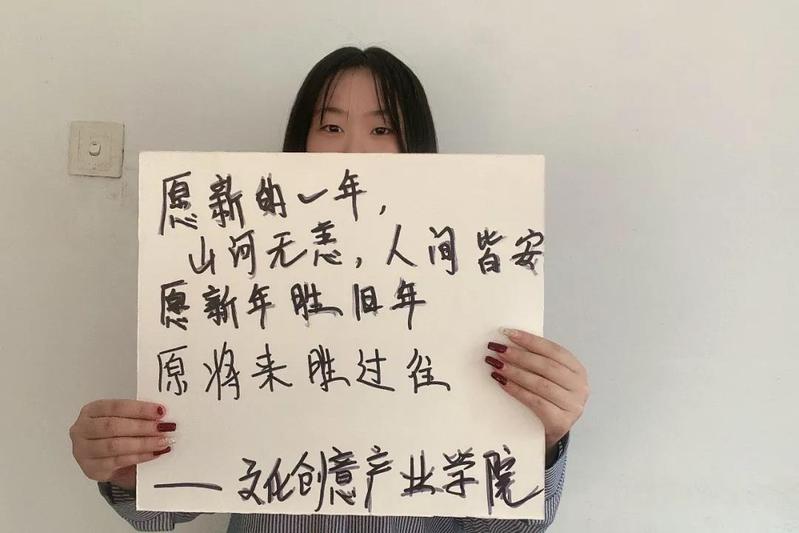 愿新的一年,
山河无恙,人间皆安
愿新年胜旧年
原将来胜过往
——文化创意产业学院